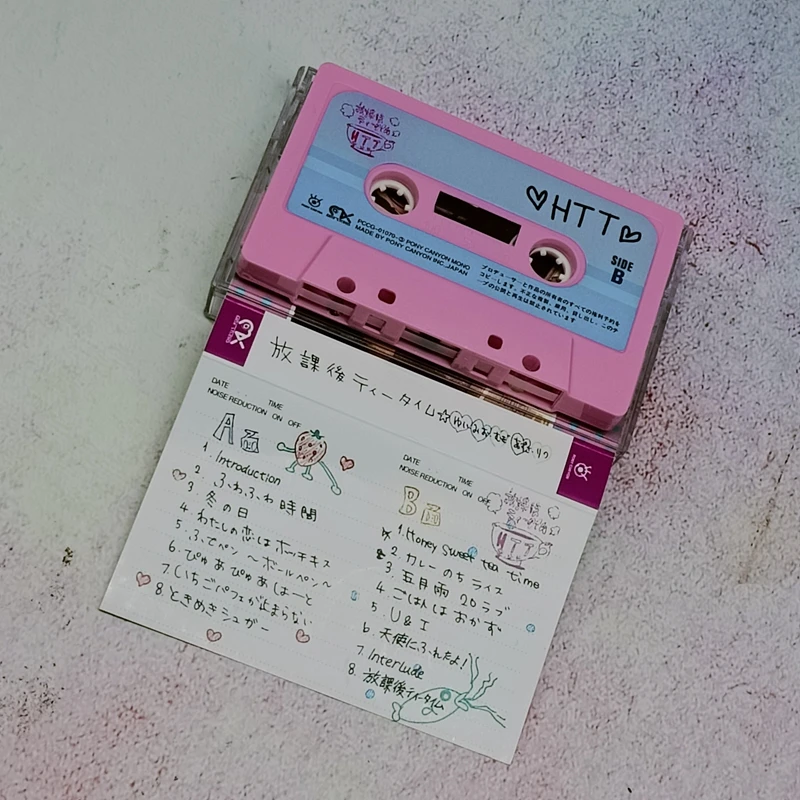 放課後
ティータイム
HTT
♡HTT♡
SIDE
B
PCCG-01070-③ PONY CANYON MONO
MADE BY PONY CANYON INC. JAPAN
プロデューサーと作品の所有者のすべての権利予約を
コピーします。不正な複製、雇用、貸し出し、このテ
ープの公開と再生は禁止されています
放課後ティータイム☆ゆい みお むぎ あずにゃん りつ
DATE TIME
NOISE REDUCTION ON OFF
A面
1. Introduction
2. ふわふわ時間
3. 冬の日
4. わたしの恋はホッチキス
5. ふでペン 〜ボールペン〜
6. ぴゅあぴゅあはーと
7. いちごパフェが止まらない
8. ときめきシュガー
DATE TIME
NOISE REDUCTION ON OFF
B面
放課後
ティータイム
HTT
1. Honey sweet tea time
2. カレーのちライス
3. 五月雨20ラブ
4. ごはんはおかず
5. U&I
6. 天使にふれたよ!
7. Interlude
8. 放課後ティータイム